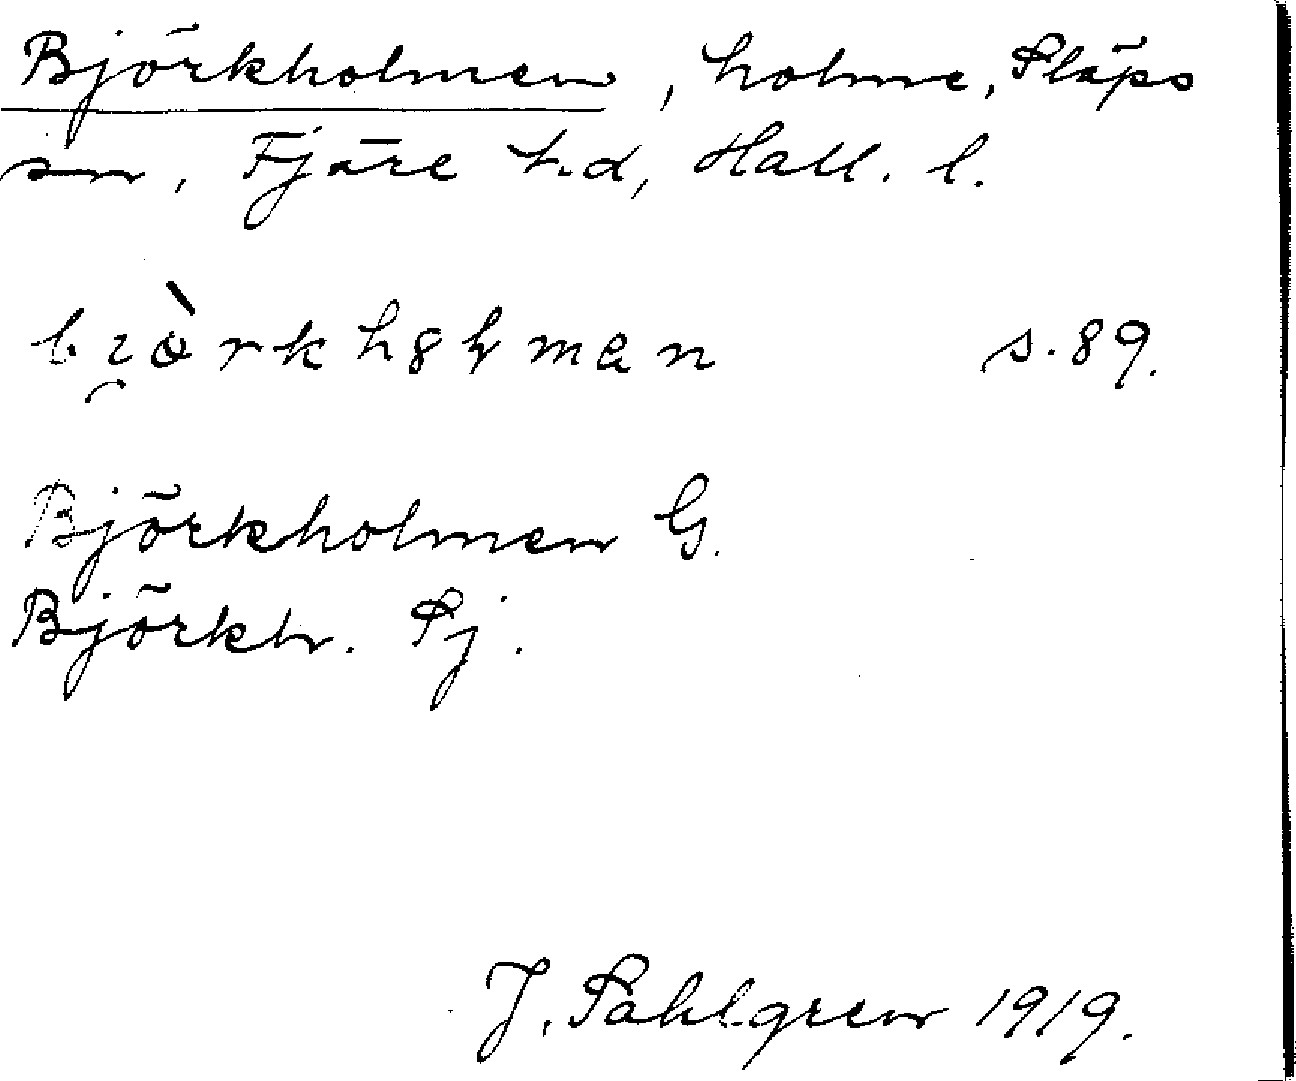 Björkholmen, holme, Släps
sn, Fjäre hd, Hall. l.
s. 89.
Björkholmen G.
Björkh. Sj.
J. Sahlgren 1919.